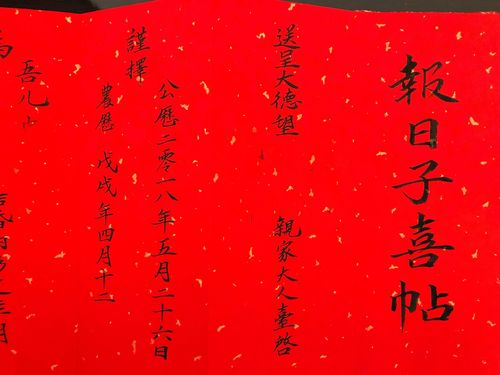 報日子喜帖
送呈大德望 親家大人臺啓
謹擇
公曆二零一八年五月二十六日
農曆 戊戌年四月十二
吾兒